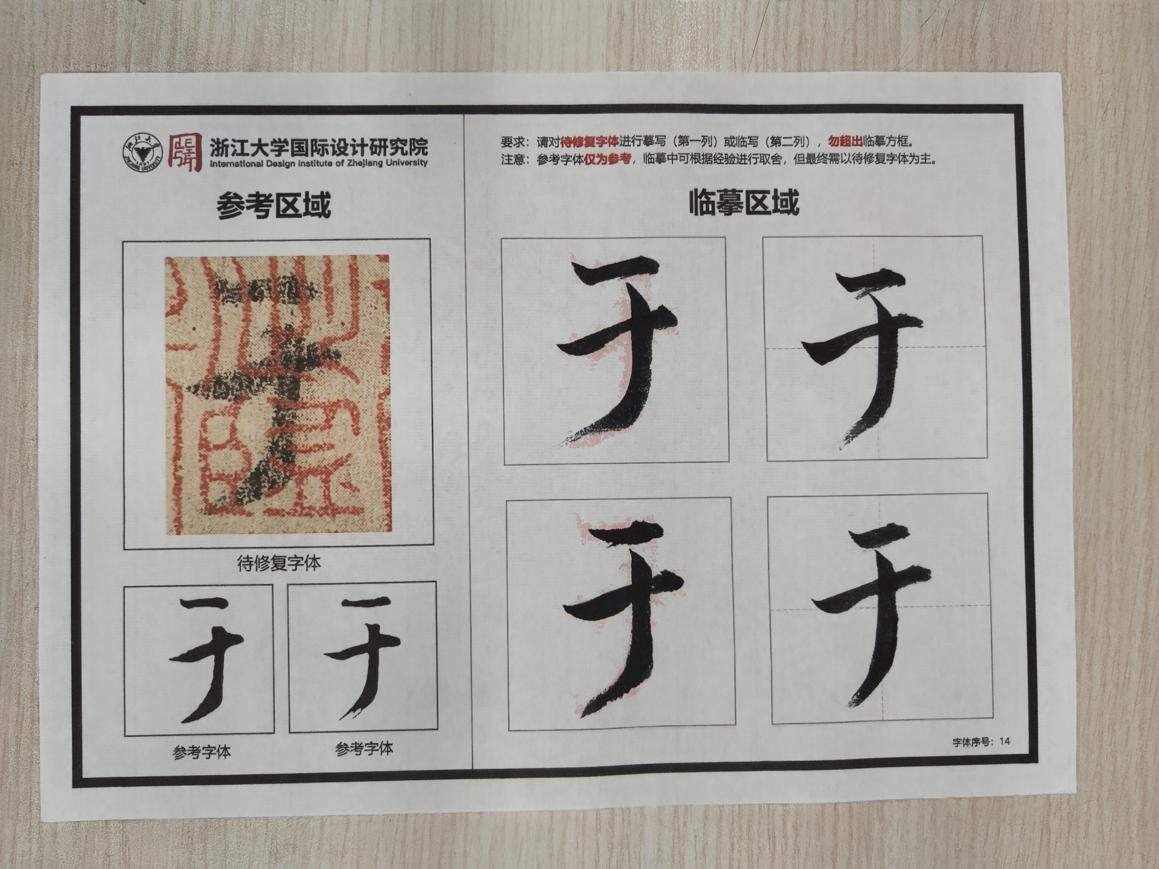 浙江大学国际设计研究院
International Design Institute of Zhejiang University
参考区域
待修复字体
于
于
参考字体
参考字体
要求:请对待修复字体进行摹写(第一列)或临写(第二列),勿超出临摹方框。
注意:参考字体仅为参考,临摹中可根据经验进行取舍,但最终需以待修复字体为主。
临摹区域
于
于
于
于
字体序号:14